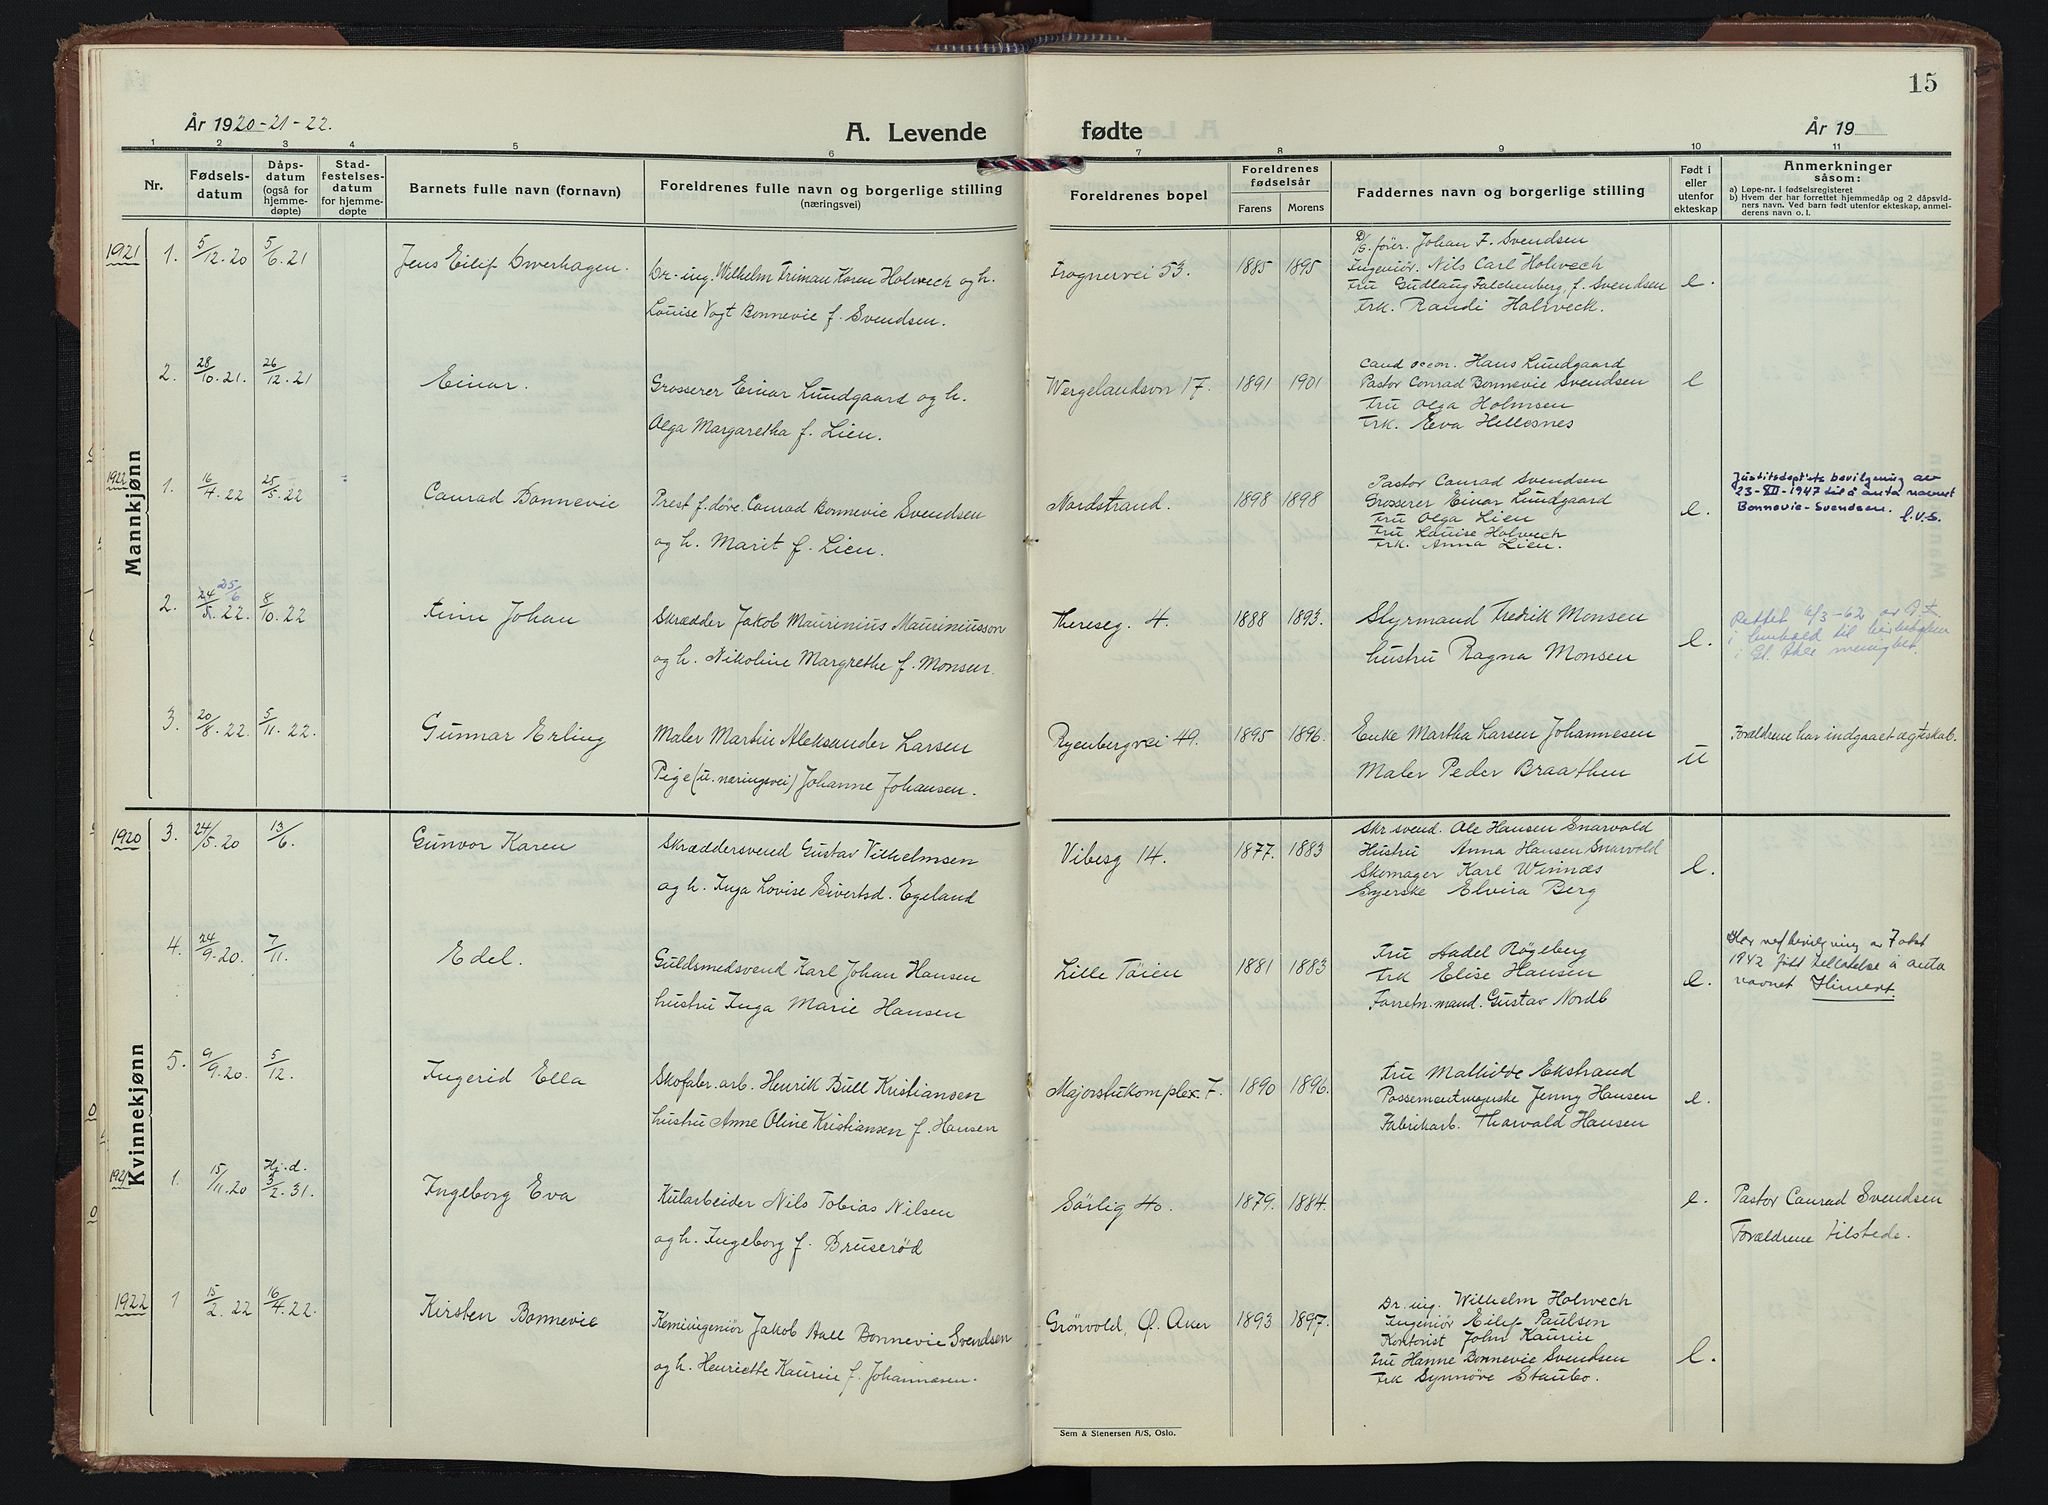 15
År 1920-21-22.
A. Levende
fødte
År 19
1 2 3 4 5 6 7 8 9 10 11
Nr.
Fødsels-
datum
Dåps-
datum
(også for
hjemme-
døpte)
Stad-
festelses-
datum
for hjemme-
døpte
Barnets fulle navn (fornavn)
Foreldrenes fulle navn og borgerlige stilling
(næringsvei)
Foreldrenes bopel
Foreldrenes
fødselsår
Farens Morens
Faddernes navn og borgerlige stilling
Født i
eller
utenfor
ekteskap
Anmerkninger
såsom:
a) Løpe-nr. i fødselsregisteret
b) Hvem der har forrettet hjemmedåp og 2 dåpsvid-
ners navn. Ved barn født utenfor ekteskap, anmel-
derens navn o. l.
Mankjønn
1921 1. 5/12.20 5/6.21 Jens Eilif Owerhagen.
Dr-ing. Wilhelm Friman Koren Holwech og h.
Louise Vogt Bonnevie f. Svendsen.
Frognervei 53. 1885 1895
D/S. fører. Johan F. Svendsen
Ingeniør. Nils Carl Holwech
Fru Gudlaug Falchenberg, f. Svendsen
Frk. Randi Holweck.
e.
2. 28/10.21. 26/12.21 Einar.
Grosserer Einar Lundgaard og h.
Olga Margaretha f. Lien.
Wergelandsvn 17. 1891 1901
Cand oecon. Hans Lundgaard
Pastor Conrad Bonnevie Svendsen
Fru Olga Holmsen
Frk. Eva Hellesnes
e
1922 1. 16/4.22 25/5.22 Conrad Bonnevie
Prest f. døve. Conrad Bonnevie Svendsen
og h. Marit f. Lien.
Nordstrand. 1898 1898
Pastor Conrad Svendsen
Grosserer Einar Lundgaard
Fru Olga Lien
Fru Louise Holwech
Frk. Anna Lien.
e.
Justitsdept's bevilgning av
23-XII-1947 til å anta navnet
Bonnevie-Svendsen. C.V.S.
2. 24/5.22. 25/6 8/10.22 Finn Johan
Skrædder Jakob Maurinius Mauriniusson
og h. Nikoline Margrethe f. Monsen.
Thereseg. 4. 1888 1893.
Styrmand Fredrik Monsen
hustru Ragna Monsen
e.
Rettet 6/3-62 av
i henhold til kirkeboken
i Gl. Aker menighet.
3. 20/8.22. 5/11.22. Gunnar Erling
Maler Martin Aleksander Larsen
Pige (u. næringsvei) Johanne Johansen.
Ryenbergvei 49. 1895 1896.
Enke Martha Larsen Johannesen
Maler Peder Braathen
u
Forældrene har indgaaet ægteskab.
Kvinnekjønn
1920 3. 24/5.20 13/6. Gunvor Karen
Skræddersvend Gustav Vilhelmsen
og h. Inga Lovise Sivertsd. Egeland
Vibesg 14. 1877. 1883
Skr svend. Ole Hansen Snarvold
Hustru Anna Hansen Snarvold
Skomager Karl Winnæs
Syerske Elvira Berg
e.
4. 24/9.20. 7/11. Edel.
Guldsmedsvend Karl Johan Hansen
hustru Inga Marie Hansen
Lille Tøien 1881 1883
Fru Aadel Røgeberg
Frk Elise Hansen
Forretn.mand. Gustav Nordb
e.
Har ved bevilgning av 7 okt
1942 fått tillatelse å anta
navnet Himert.
5. 9/9.20. 5/12. Ingerid Ella
Skofabr. arb. Henrik Bull Kristiansen
hustru Anne Oline Kristiansen f. Hansen
Majorstukomplex. 7. 1890 1896.
Fru Mathilde Ekstrand
Possementmagerske Jenny Hansen
Fabrikarb. Thorvald Hansen
e.
1921 1. 15/11.20 Hj.d. 3/2.31. Ingeborg Eva
Kularbeider Nils Tobias Nilsen
og h. Ingeborg f. Bruserød
Sørlig 40. 1879. 1884.
e.
Pastor Conrad Svendsen
Forældrene tilstede.
1922 1 15/2.22 16/4.22. Kirsten Bonnevie
Kemiingeniør Jakob Aall Bonnevie Svendsen
og h. Henriette Kaurin f. Johannesen.
Grønvold, Ø. Aker 1893 1897.
Dr. ing. Wilhelm Holwech
Ingeniør Eilif Paulson
Kontorist John Kaurin
Fru Hanne Bonnevie Svendsen
Frk Synnøve Staubo.
e.
Sem & Stenersen A/S, Oslo.